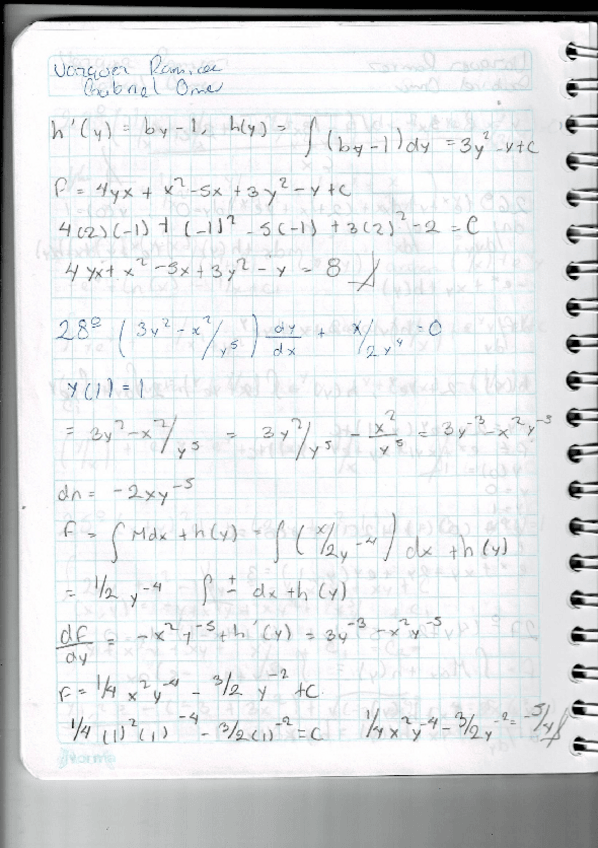 Vazquez Ramirez
Gabriel Omar
h'(y) = 6y-1, h(y) = ∫(6y-1)dy = 3y²-y+c
F = 4yx + x² - 5x + 3y² - y + c
4(2)(-1) + (-1)² - 5(-1) + 3(2)² - 2 = C
4yx + x² - 5x + 3y² - y = 8
28º (3y²-x²/y⁵) dy/dx + x/2y⁴ = 0
y(1) = 1
= 3y²-x²/y⁵ = 3y²/y⁵ - x²/y⁵ = 3y⁻³ - x²y⁻⁵
dn = -2xy⁻⁵
f = ∫Mdx + h(y) = ∫(x/2y⁻⁴) dx + h(y)
= 1/2 y⁻⁴ ∫ dx + h(y)
df/dy = -x²y⁻⁵ + h'(y) = 3y⁻³ - x²y⁻⁵
F = 1/4 x²y⁻⁴ - 3/2 y⁻² + C
1/4 (1)²(1)⁻⁴ - 3/2(1)⁻² = C 1/4x²y⁻⁴ - 3/2y⁻² = -5/4